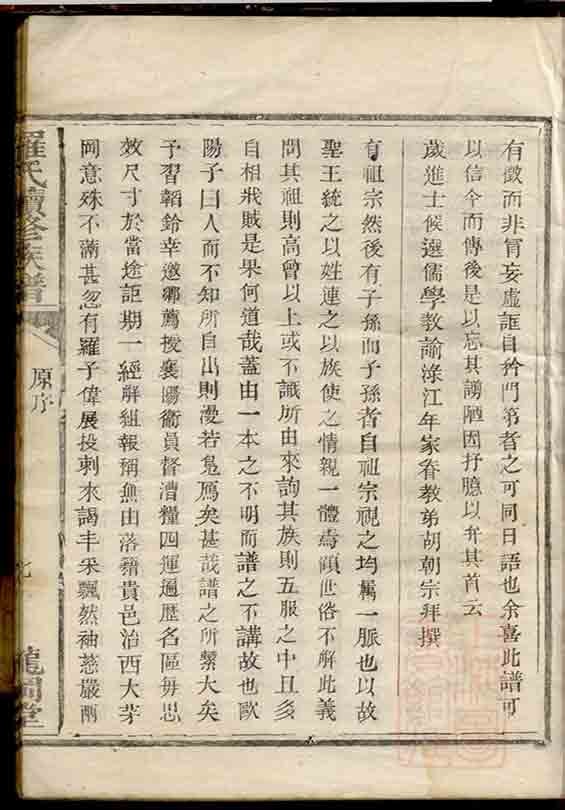 有徵而非冐妄虛誆自矜門第者之可同日語也余喜此譜可
以信今而傳後是以忘其謭陋固抒臆以弁其首云
歲進士候選儒學教諭淥江年家眷教弟胡朝宗拜撰
有祖宗然後有子孫而子孫者自祖宗視之均屬一脈也以故
聖王統之以姓連之以族使之情親一體焉顧世俗不解此義
問其祖則高曾以上或不識所由來詢其族則五服之中且多
自相戕賊是果何道哉蓋由一本之不明而譜之不講故也歐
陽子曰人而不知所自出則漫若鳧鴈矣甚哉譜之所繫大矣
予習韜鈐幸邀鄉薦授襄陽衞員督漕糧四運遍歷名區毋思
效尺寸於當途詎期一經解組報稱無由落藉貴邑治西大茅
岡意殊不滿甚忽有羅子偉展投刺來謁丰采飄然袖慈嚴兩
羅氏續修族譜
原序
龍岡堂